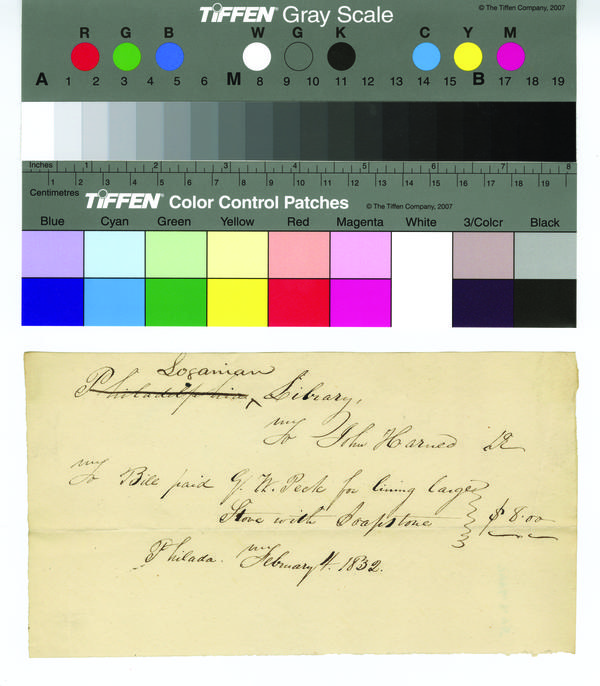 TIFFEN® Gray Scale © The Tiffen Company, 2007
R G B W G K C Y M
A 1 2 3 4 5 6 M 8 9 10 11 12 13 14 15 B 17 18 19
Inches 1 2 3 4 5 6 7 8
Centimetres 1 2 3 4 5 6 7 8 9 10 11 12 13 14 15 16 17 18 19
TIFFEN® Color Control Patches © The Tiffen Company, 2007
Blue Cyan Green Yellow Red Magenta White 3/Colcr Black
Loganian
Philadelphia Library,
To John Harned Dr
To Bill paid G. W. Peck for lining large
Stove with Soapstone $8.00
Philada. February 4. 1832.